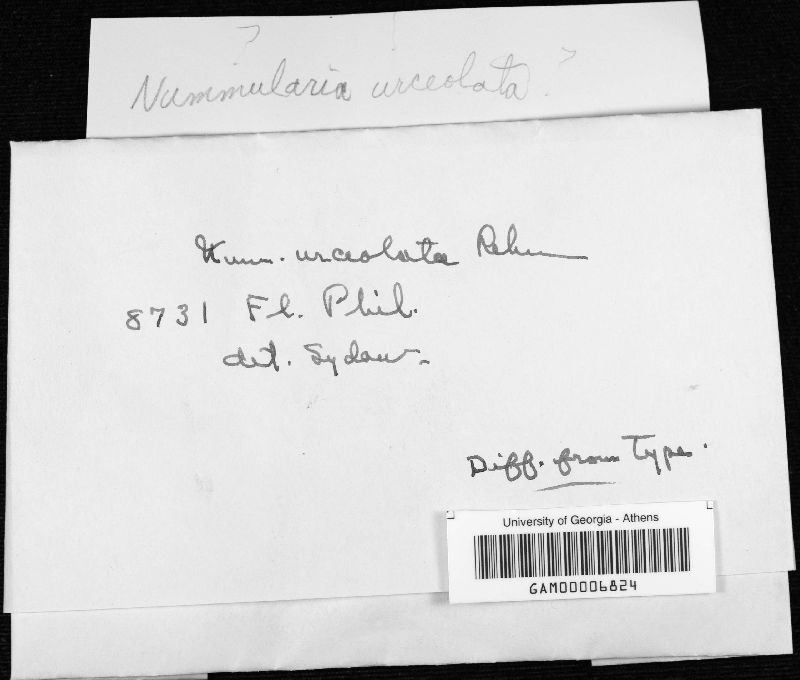 ?
Nummularia urceolata ?
Numm. urceolata Rehm
8731 Fl. Phil.
det. Sydow.
Diff. from Type.
University of Georgia - Athens
GAM00006824